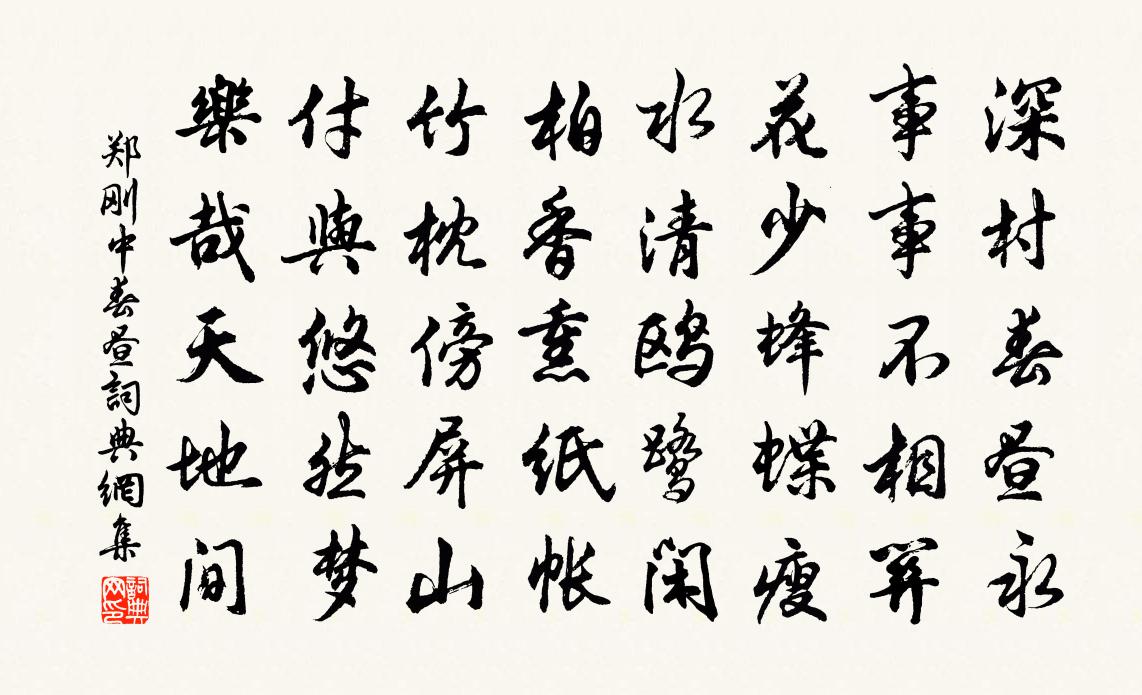 深村春昼永
事事不相关
花少蜂蝶瘦
水清鸥鹭闲
柏香熏纸帐
竹枕傍屏山
付與悠然梦
樂哉天地间
郑刚中春昼詞典網集
詞典
网印